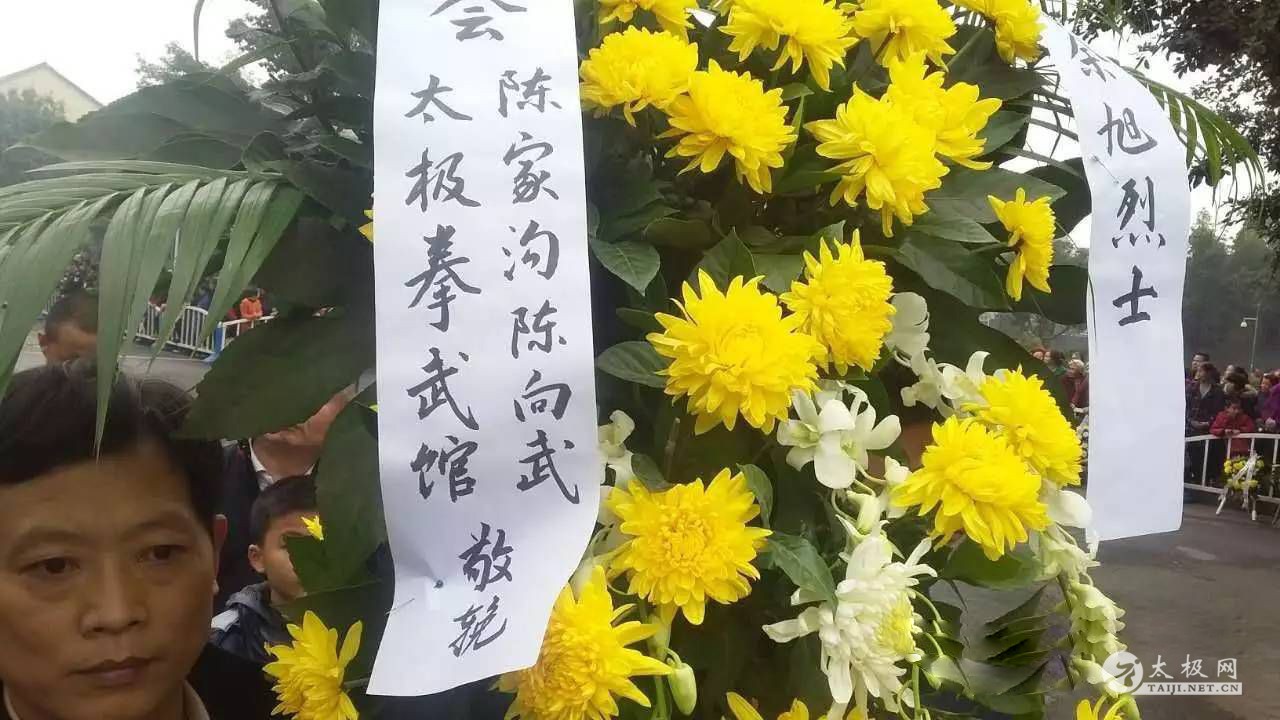 会
陈家沟陈向武
太极拳武馆
敬挽
旭烈士
太极网
TAIJI.NET.CN